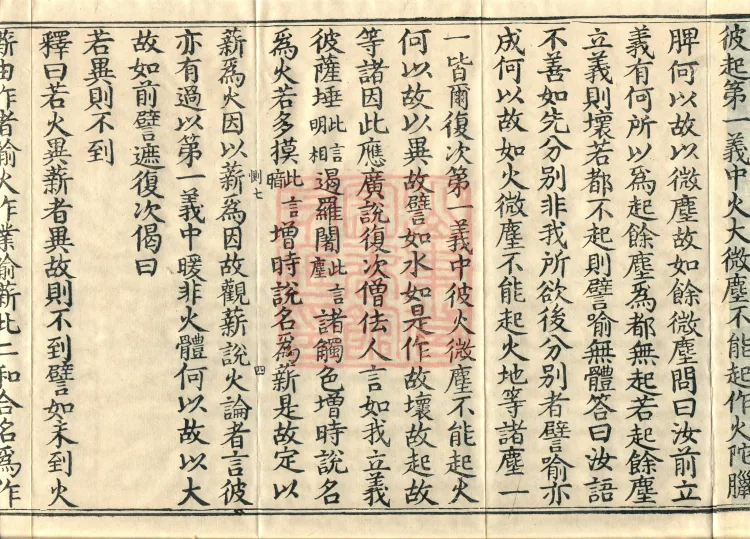 彼起第一義中火大微塵不能起作火陀臘
脾何以故以微塵故如餘微塵問曰汝前立
義有何所以爲起餘塵爲都無起若起餘塵
立義則壞若都不起則譬喻無體答曰汝語
不善如先分別非我所欲後分別者譬喻亦
成何以故如火微塵不能起火地等諸塵一
一皆爾復次第一義中彼火微塵不能起火
何以故以異故譬如水如是作故壞故起故
等諸因此應廣說復次僧佉人言如我立義
彼薩埵此言明相遏羅闍此言塵諸觸色增時說名
爲火若多摸此言暗增時說名爲薪是故定以
惻七
四
薪爲火因以薪爲因故觀薪說火論者言彼
亦有過以第一義中暖非火體何以故以大
故如前譬遮復次偈曰
若異則不到
釋曰若火異薪者異故則不到譬如未到火
薪由作者喻火作業喻薪此二和合名爲作